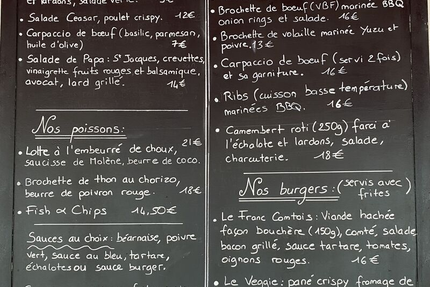 et lardons, salade verte. 9€
• Salade Ceasar, poulet crispy. 12€
• Carpaccio de boeuf (basilic, parmesan,
huile d'olive) 7€
• Salade de Papa : St Jacques, crevettes,
vinaigrette fruits rouges et balsamique,
avocat, lard grillé. 14€
Nos poissons :
• Lotte à l'embeurré de choux, 21€
saucisse de Molène, beurre de coco.
• Brochette de thon au chorizo,
beurre de poivron rouge. 18€
• Fish & Chips 14,50€
Sauces au choix : béarnaise, poivre
vert, sauce au bleu, tartare,
échalotes ou sauce burger.
• Brochette de boeuf (VBF) marinée BBQ
onion rings et salade. 16€
• Brochette de volaille marinée Yuzu et
poivre. 13€
• Carpaccio de boeuf (servi 2 fois)
et sa garniture. 16€
• Ribs (cuisson basse température)
marinées BBQ. 16€
• Camembert roti (250g) farci à
l'échalote et lardons, salade,
charcuterie. 18€
Nos burgers : (servis avec
frites)
• Le Franc Comtois : Viande hachée
façon bouchère (150g), comté, salade,
bacon grillé, sauce tartare, tomates,
oignons rouges. 16€
• Le Veggie : pané crispy fromage de